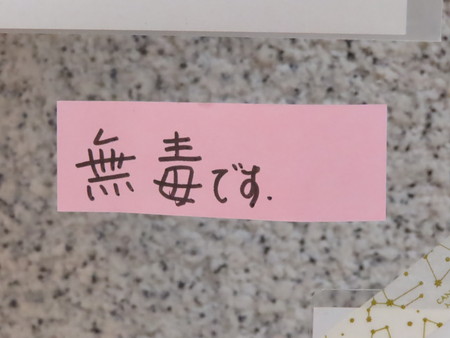 無毒です.